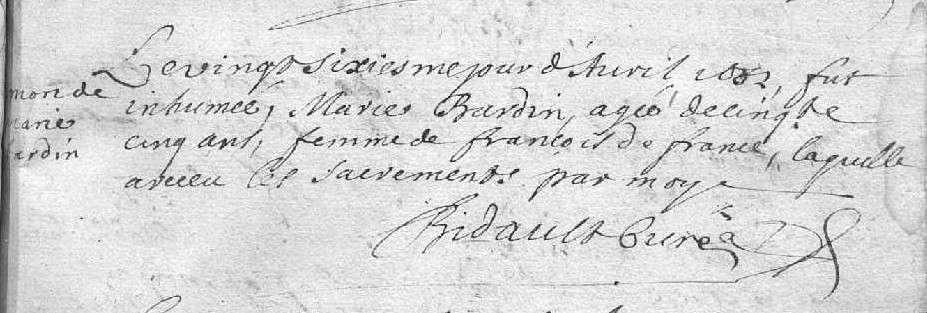 mort de
marie
Bardin
Le vingt sixiesme jour d'Avril 1682, fut
inhumée, Marie Bardin, ageé de cinq te
cinq ans, femme de francois de france, laquelle
a receu les sacrements par moy
Ridault Curé